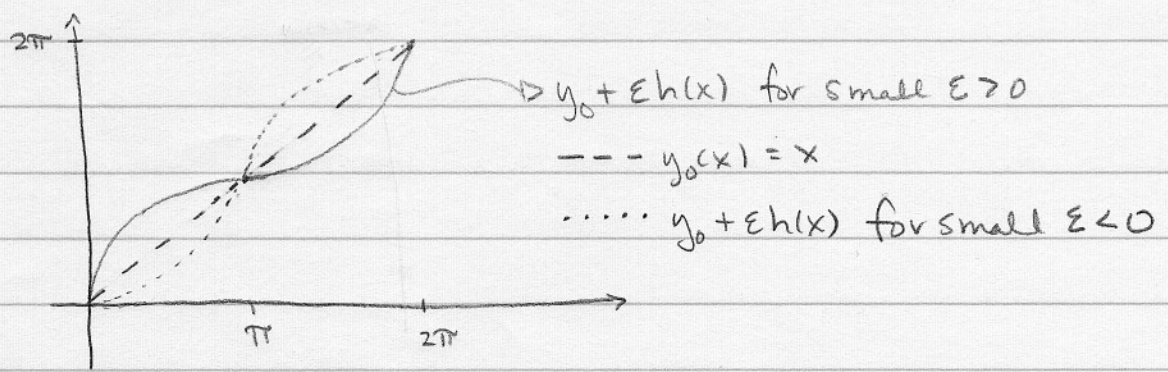 2π
y₀ + εh(x) for small ε > 0
--- y₀(x) = x
..... y₀ + εh(x) for small ε < 0
π
2π